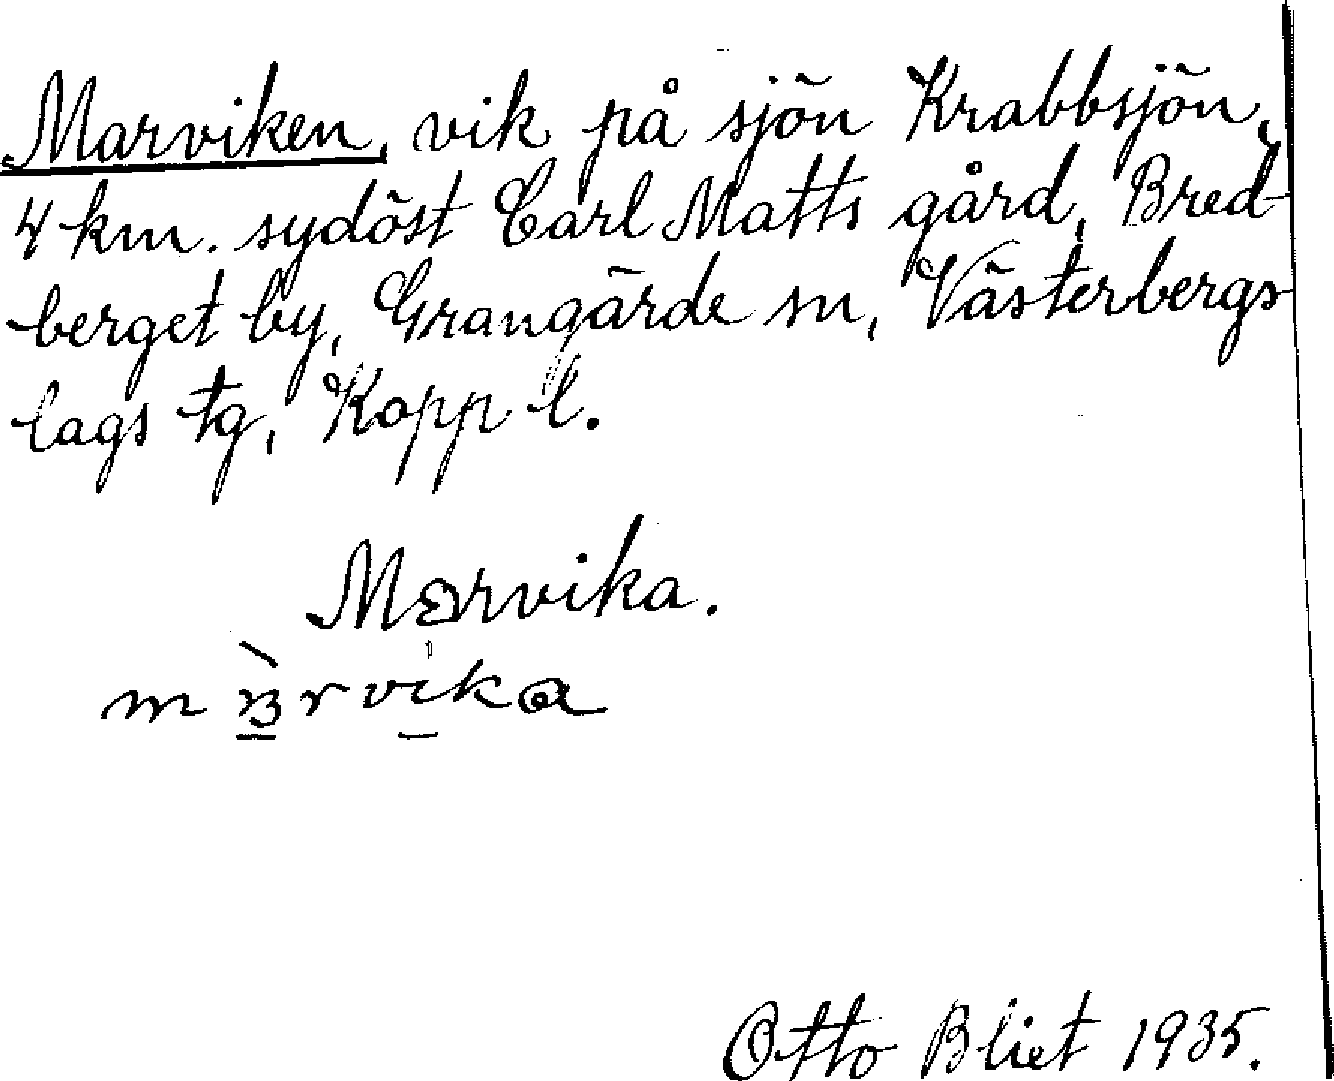 Marviken, vik på sjön Krabbsjön,
4 km. sydöst Carl Matts gård, Bred-
berget by, Grangärde sn, Västerbergs-
lags tg, Kopp l.
Marvika.
Otto Bliet 1935.